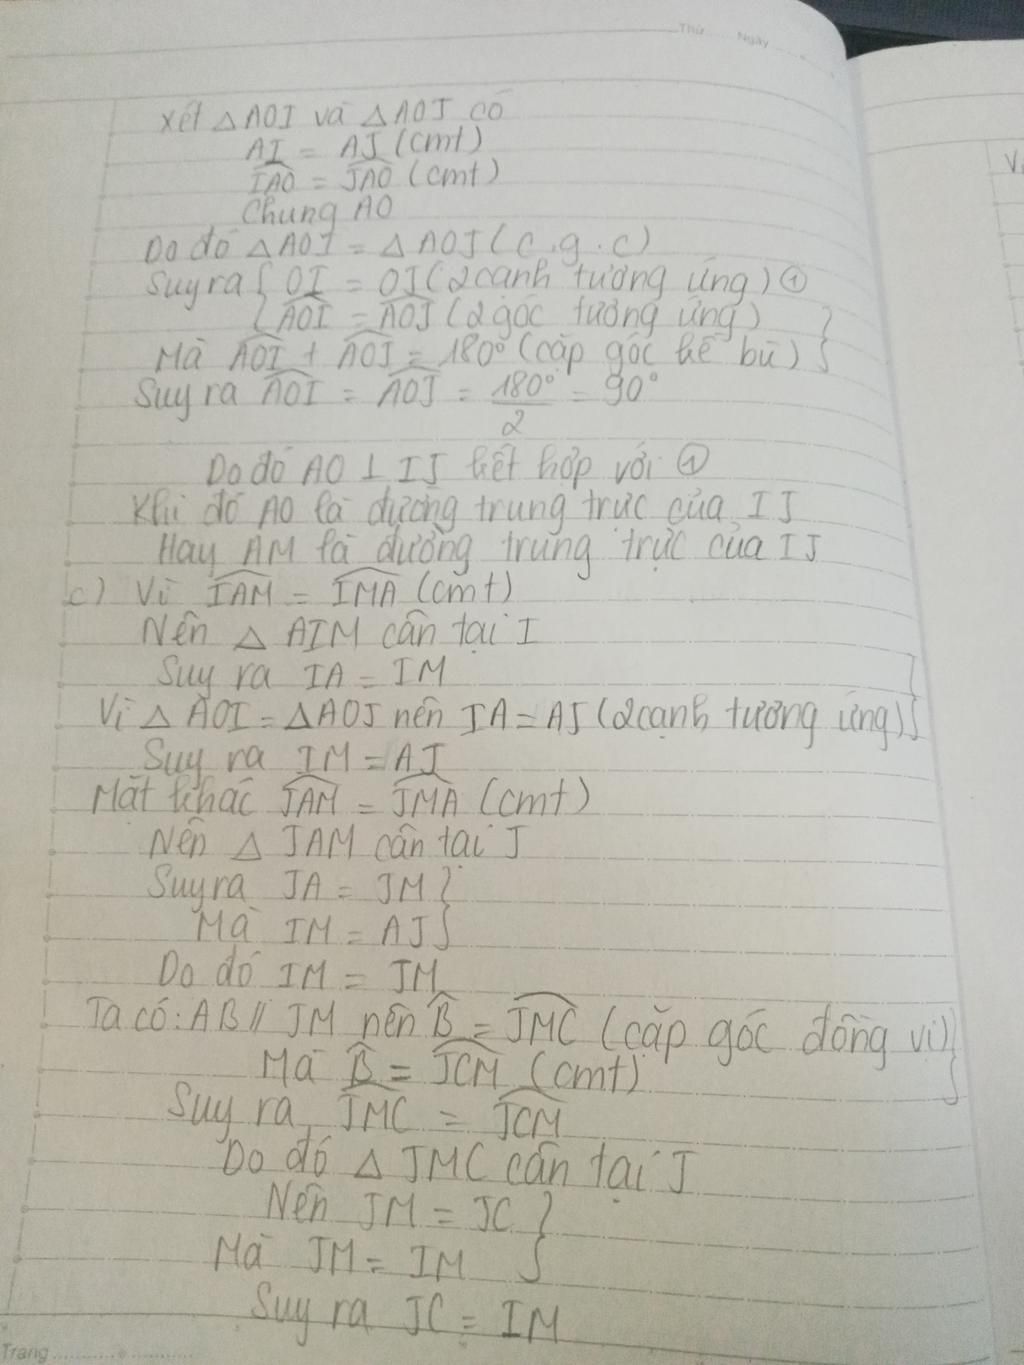 Thứ ..... Ngày .....
Xét △AOI và △AOJ có
AI = AJ (cmt)
\widehat{IAO} = \widehat{JAO} (cmt)
Chung AO
Do đó △AOI = △AOJ (c.g.c)
Suy ra { OI = OJ (2 cạnh tương ứng) ①
{ \widehat{AOI} = \widehat{AOJ} (2 góc tương ứng) }
Mà \widehat{AOI} + \widehat{AOJ} = 180° (cặp góc kề bù) }
Suy ra \widehat{AOI} = \widehat{AOJ} = \frac{180°}{2} = 90°
Do đó AO ⊥ IJ kết hợp với ①
Khi đó AO là đường trung trực của IJ
Hay AM là đường trung trực của IJ
c) Vì \widehat{IAM} = \widehat{IMA} (cmt)
Nên △ AIM cân tại I
Suy ra IA = IM }
Vì △AOI = △AOJ nên IA = AJ (2 cạnh tương ứng) }
Suy ra IM = AJ
Mặt khác \widehat{JAM} = \widehat{JMA} (cmt)
Nên △ JAM cân tại J
Suy ra JA = JM }
Mà IM = AJ }
Do đó IM = JM
Ta có: AB // JM nên \widehat{B} = \widehat{JMC} (cặp góc đồng vị) }
Mà \widehat{B} = \widehat{JCM} (cmt) }
Suy ra \widehat{JMC} = \widehat{JCM}
Do đó △ JMC cân tại J
Nên JM = JC }
Mà JM = IM }
Suy ra JC = IM
Trang ..........